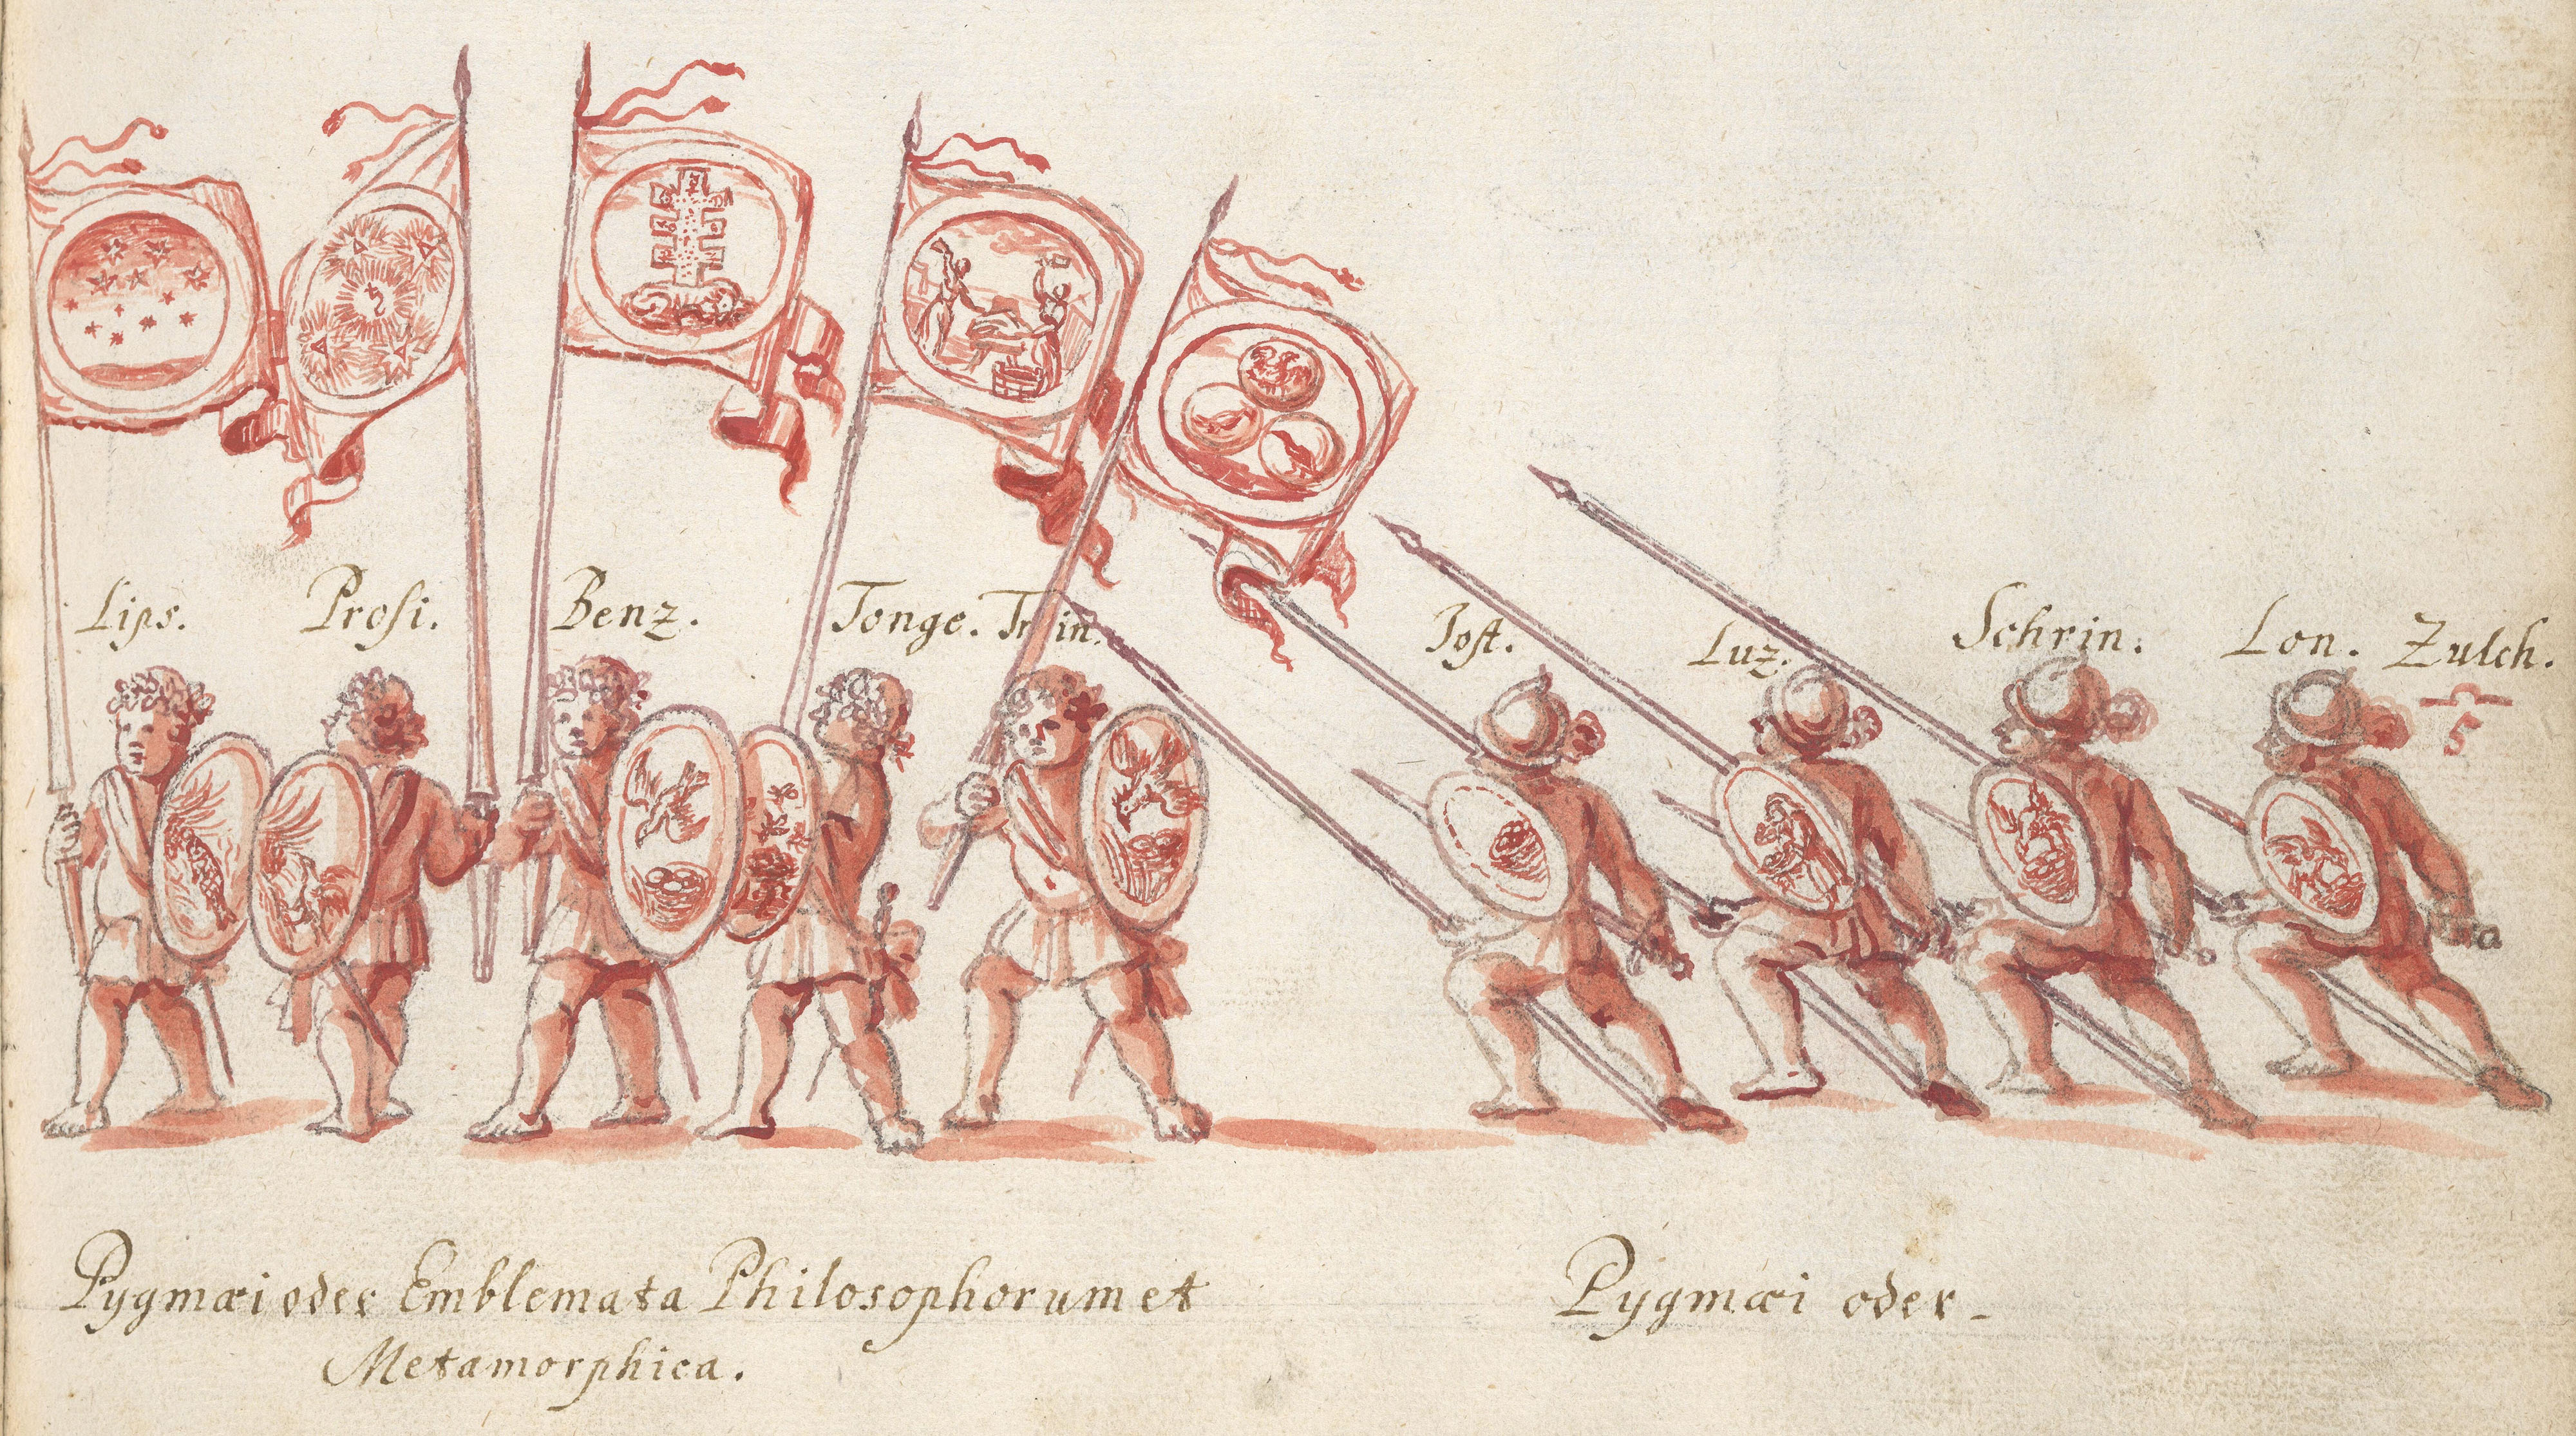 Lips. Prosi. Benz. Tonge. Trin. Jost. Luz. Schrin. Lon. Zulch.
5
a
Pygmæi oder Emblemata Philosophorum et
Metamorphica.
Pygmæi oder-